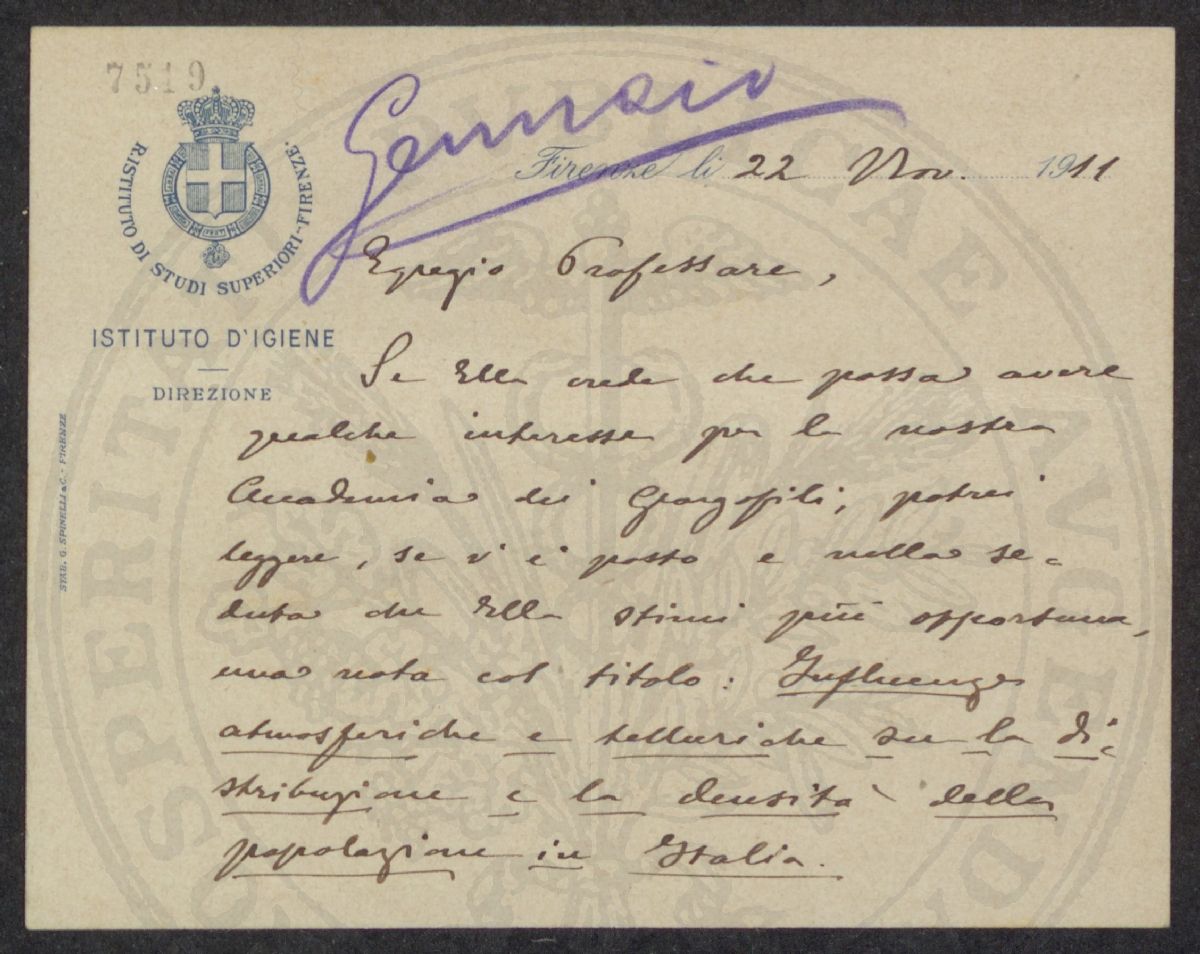 7519
Gennaio
R. ISTITUTO DI STUDI SUPERIORI - FIRENZE
Firenze li 22 Nov. 1911
ISTITUTO D'IGIENE
DIREZIONE
STAB. G. SPINELLI & C. - FIRENZE
Egregio Professore,
Se Ella crede che possa avere
qualche interesse per la nostra
Accademia dei Georgofili, potrei
leggere, se v'è posto e nella se=
duta che Ella stimi più opportuna,
una nota col titolo: Influenze
atmosferiche e telluriche su la di=
stribuzione e la densità della
popolazione in Italia.
PROSPERITATI PUBLICAE AUGENDAE